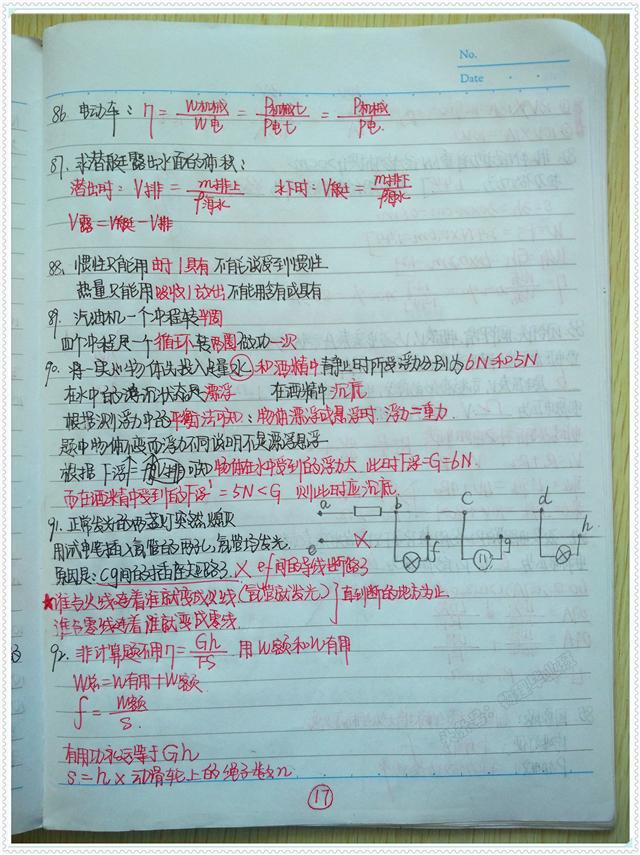 No.
Date
86. 电动车: η = W机械/W电 = P机械t/P电t = P机械/P电
87. 求潜艇露出水面的体积:
潜出时: V排 = m排上/ρ海水 水下时: V艇 = m排下/ρ海水
V露 = V艇 - V排
88. 惯性只能用由于/具有 不能说受到惯性
热量只能用吸收/放出 不能用含有或具有
89. 汽油机一个冲程转半圈
四个冲程是一个循环 转两圈 做功一次
90. 将一实心物体投入足量水和酒精中静止时所受浮力分别为6N和5N
在水中的浮沉状态是漂浮 在酒精中沉底
根据测浮力中的平衡法可知: 物体漂浮或悬浮时 浮力=重力
题中物体前后浮力不同说明不是漂浮悬浮
物体在水中受到的浮力大 此时F浮=G=6N
而在酒精中受到的F浮' = 5N<G 则此时应沉底
91. 正常发光的两盏灯突然熄灭
用试电笔插入氖管的两孔, 氖管均发光.
原因是: cg间的插座短路了 × ef间的导线断路了
a b c d
e f g h
×
★谁与火线连着谁就变成火线(氖管就发光)
谁与零线连着谁就变成零线
直到断的地方为止
92. 非计算题不用η = Gh/FS 用W额和W有用
W总 = W有用 + W额
f = W额/S
有用功永远等于Gh
S = h × 动滑轮上的绳子数n
17